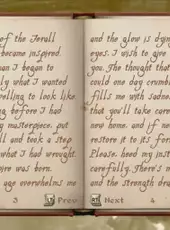 of the Jerall
became inspired.
an I began to
ly what I wanted
velling to look like
ng before I had
y masterpiece. put
ll and took a step
what I had wrought.
ire was born.
age overwhelms me
3 Prev
and the glow is dying
eyes. I wish to give
you. The thought that
could one day crumbl
fills me with sadness
that you'll take care
new home. and if ne
restore it to its for
Please. heed my inst
carefully. There's m
and the strength dra
Next 4